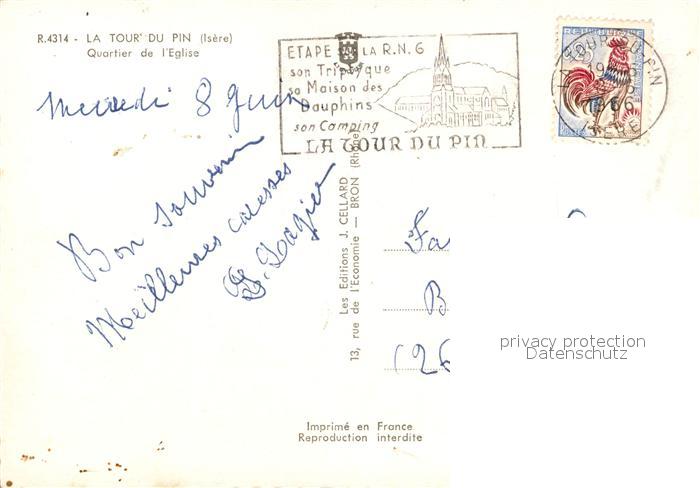 R.4314 - LA TOUR DU PIN (Isère)
Quartier de l'Eglise
ETAPE SUR LA R.N. 6
son Triptyque
sa Maison des
Dauphins
son Camping
LA TOUR DU PIN
LA TOUR-DU-PIN
1966
ISERE
Mercredi 8 Juin
Bon souvenir
Meilleures caresses
Les Editions J. CELLARD
13, rue de l'Economie — BRON (Rhône)
Fa
B
(26
privacy protection
Datenschutz
Imprimé en France
Reproduction interdite